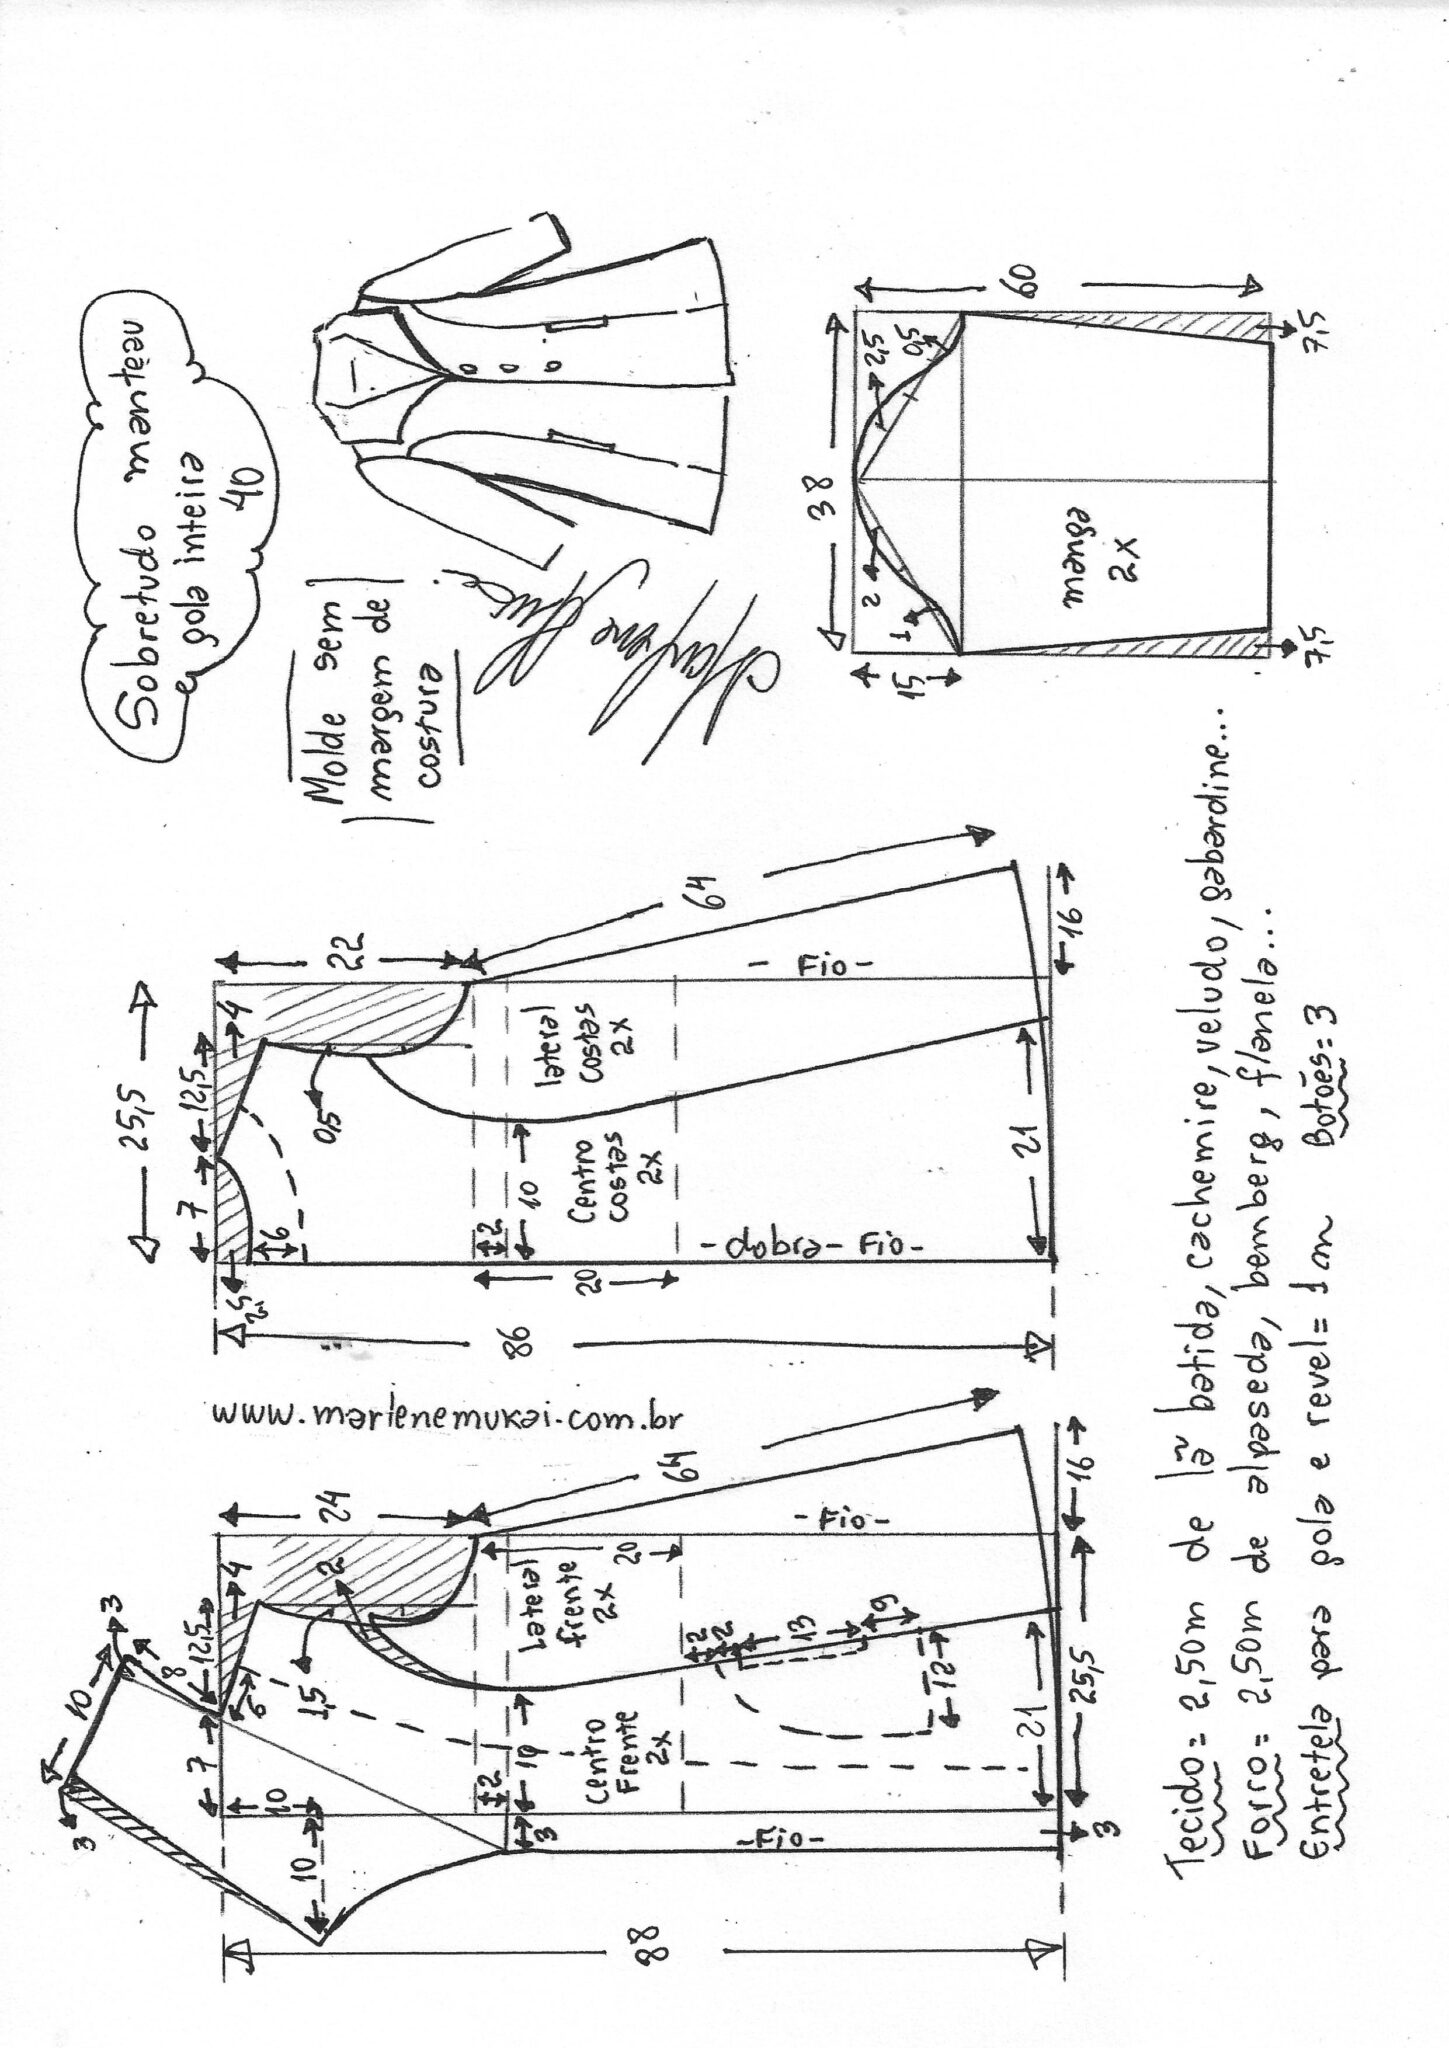 Sobretudo manteau
gola inteira
40
Molde sem
margem de
costura
www.marlenemukai.com.br
3
10
3
3
8
12,5
4
24
7
6
1,5
2
10
10
64
88
2
10
3
Lateral
frente
2x
20
Centro
Frente
2x
2
2
13
9
12
- Fio -
- Fio -
21
3
25,5
16
25,5
7
12,5
4
22
2,5
6
0,5
64
86
2
10
20
lateral
costas
2x
Centro
costas
2x
- Fio -
- dobra - Fio -
21
16
38
15
2
1
2,5
0,5
60
manga
2x
7,5
7,5
Tecido = 2,50m de lã batida, cachemire, veludo, gabardine...
Forro = 2,50m de alpaseda, bemberg, flanela...
Entretela para gola e revel = 1 m Botões = 3